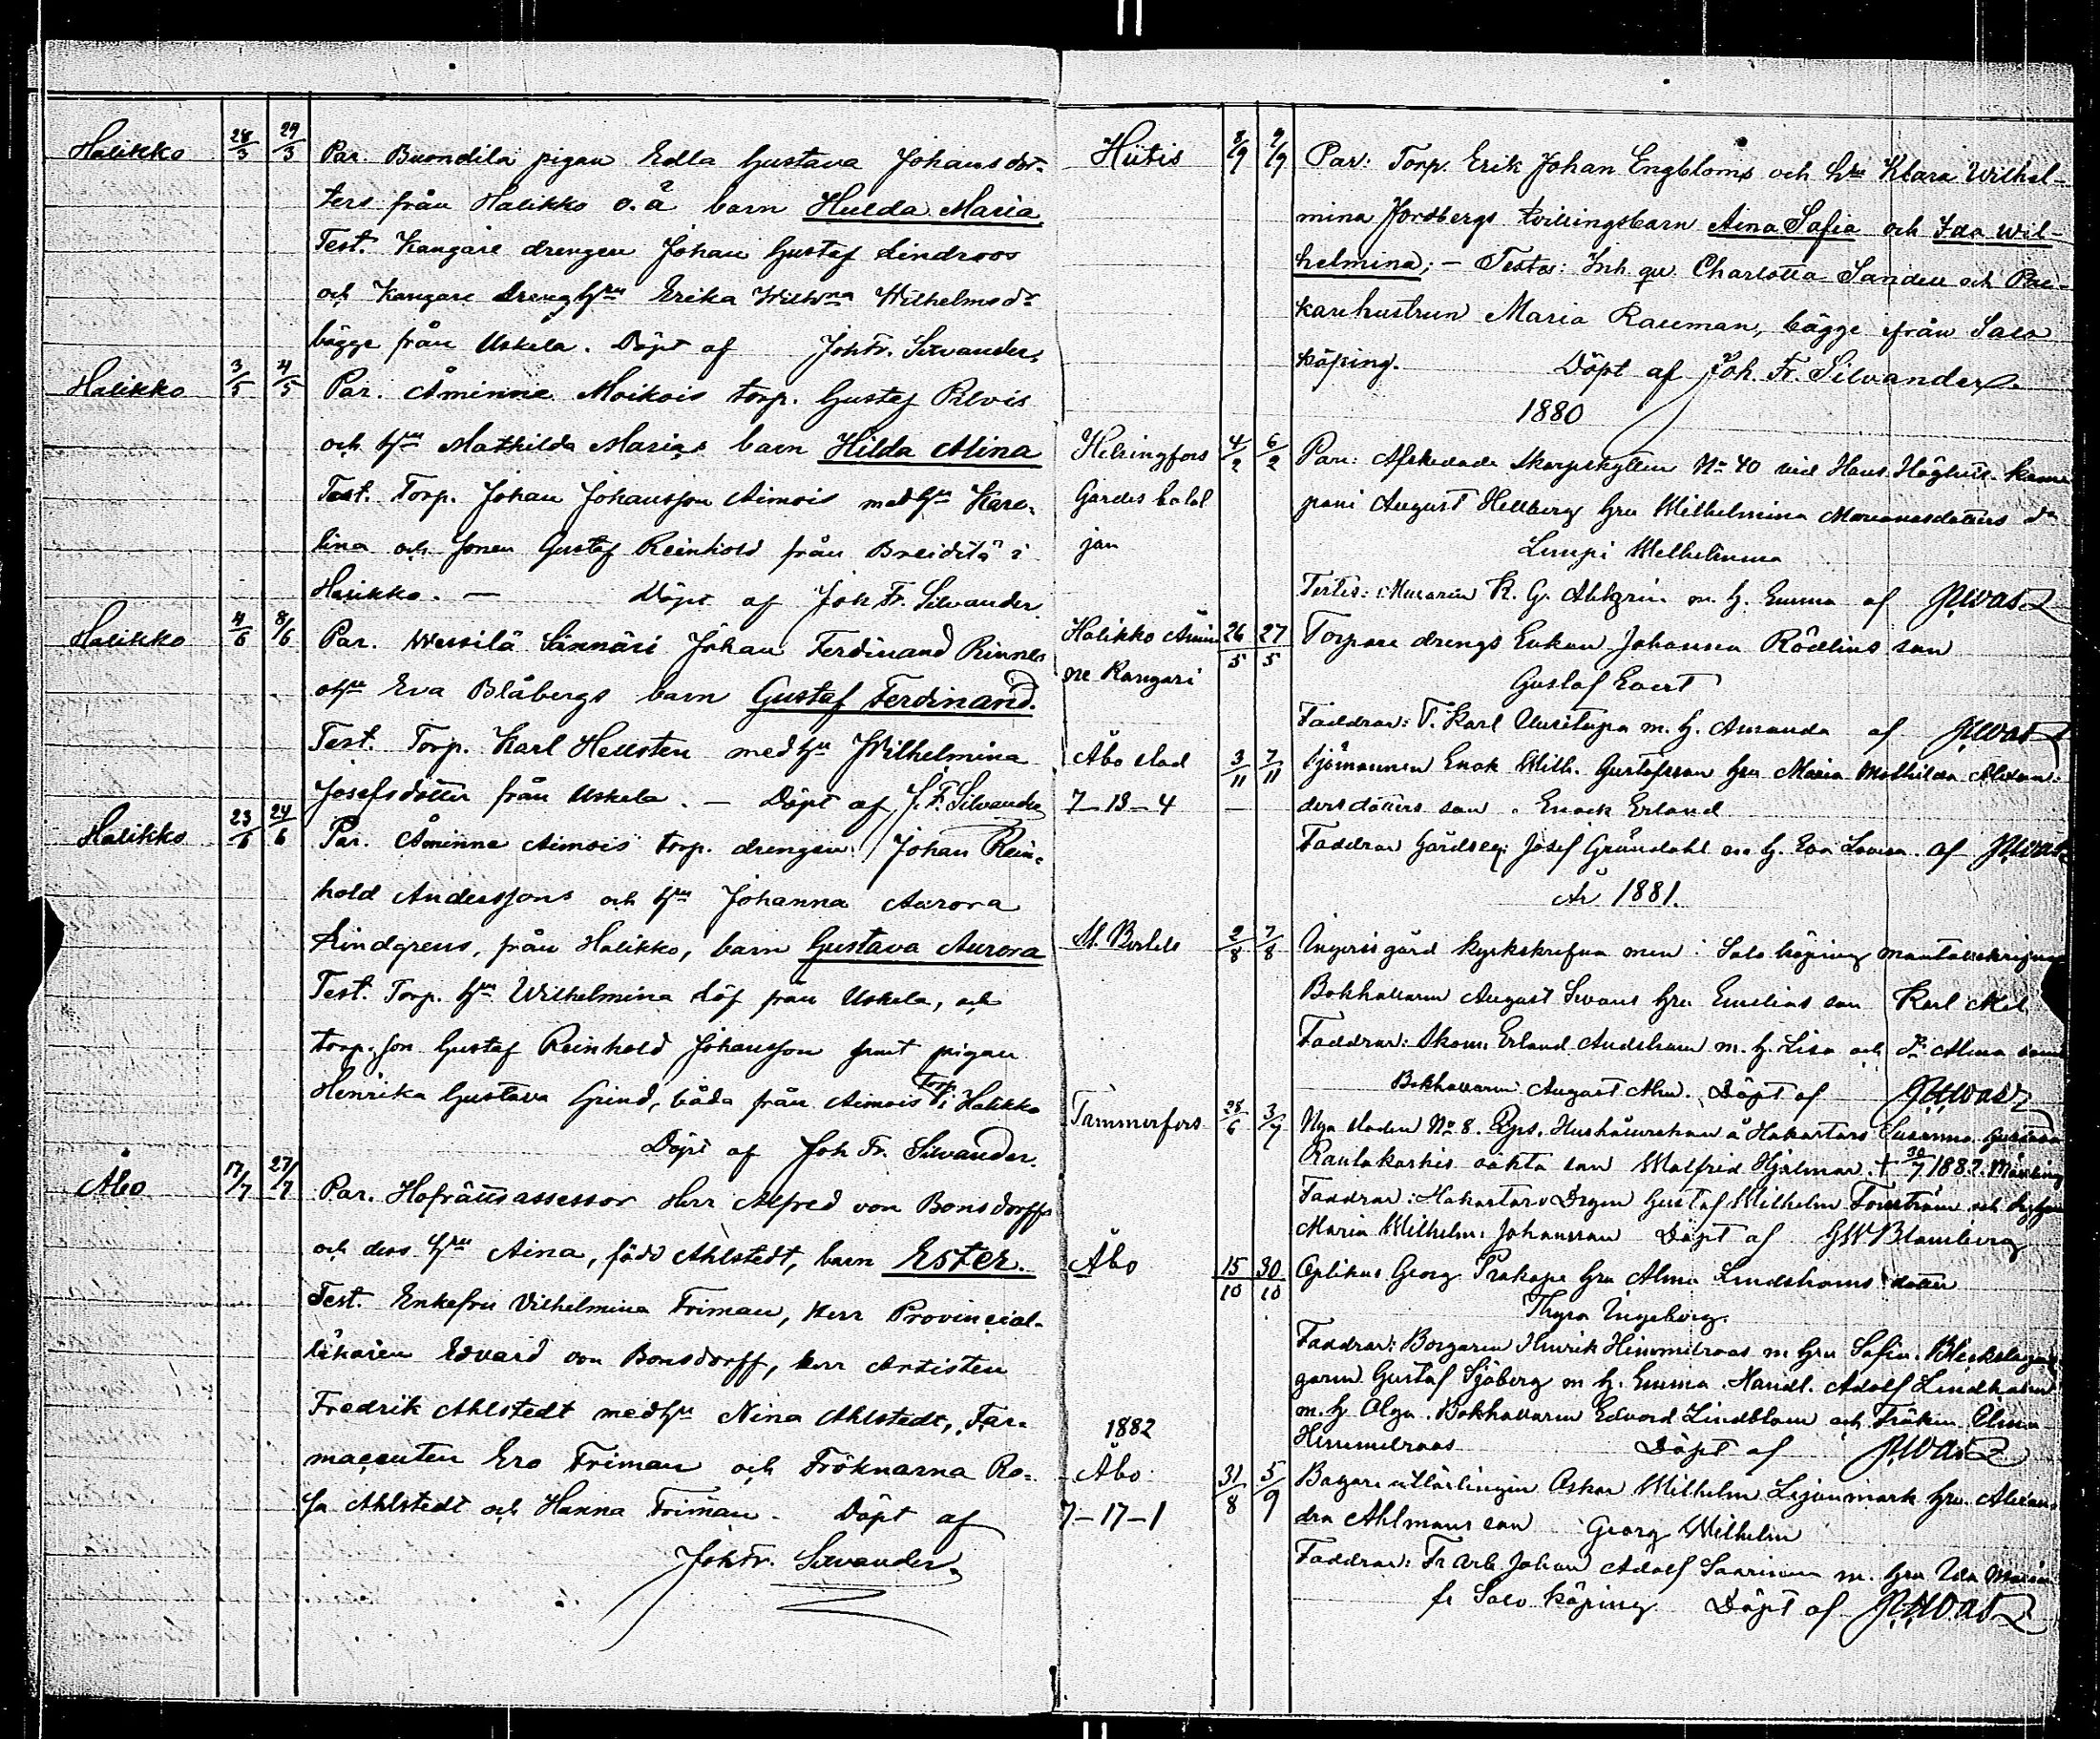 Halikko 28/3 29/3 Par. Buondila pigan Edla Gustava Johansdot-
ters från Halikko o.ä barn Hulda Maria
Test. Kangare drengen Johan Gustaf Lindroos
och Kangare drenghu Erika Wilhna Wilhelmsdr
bägge från Uskela. Döpt af Joh Fr. Silvander.
Halikko 3/5 4/5 Par. Åminne Moikois torp. Gustaf
och hu Mathilda Marias barn Hilda Alina
Test. Torp. Johan Johansson Aimois med hu Karo-
lina och sonen Gustaf Reinhold från i
Halikko. — Döpt af Joh Fr. Silvander
Halikko 4/6 8/6 Par. Wessilä Johan Ferdinand
o hu Eva Blåbergs barn Gustaf Ferdinand.
Test. Torp. Karl Hellsten med hu Wilhelmina
Josefsdotter från Uskela. — Döpt af J. F. Silvander
Halikko 23/6 24/6 Par. Åminne Aimois torp. drengen Johan Rein-
hold Anderssons och hu Johanna Aurora
Lindgrens, från Halikko, barn Gustava Aurora
Test. Torp. hu Wilhelmina Löf från Uskela, och
torp. son Gustaf Reinhold Johansson samt pigan
Henrika Gustava Grind, båda från Aimois torp i Halikko
Döpt af Joh Fr. Silvander.
Åbo 17/7 27/7 Par. Hofrättsassessor Herr Alfred von Bonsdorffs
och dess hu Aina, född Ahlstedt, barn Ester.
Test. Enkefru Vilhelmina Friman, Herr Provincial-
läkaren Edvard von Bonsdorff, herr Artisten
Fredrik Ahlstedt med hu Nina Ahlstedt, Far-
maceuten Ero Friman och Fröknarna Ro-
sa Ahlstedt och Hanna Friman. Döpt af
Joh Fr. Silvander.
Hiitis 8/9 9/9 Par: Torp. Erik Johan Engbloms och hu Klara Wilhel-
mina Nordbergs tvillingsbarn Aina Sofia och Ida Wil-
helmina; — Testes: Inh. qv. Charlotta Sandell och
hustrun Maria Rauman, bägge ifrån Salo
köping. Döpt af Joh. Fr. Silvander.
1880
Helsingfors 4/2 6/2 Par: Afskedade skarpskytten No 40 vid Hans Höghets kom
Gardes batal pani August Hellberg hru Wilhelmina dr
jon Lempi Wilhelmina
Testes: K. G. Ahlgren m. h. Emma af
Halikko Åmin 26/5 27/5 Torpare drengs Enkan Johanna Rödlins son
ne Kangari Gustaf Evert
Faddrar: T. Karl m. h. Amanda af
Åbo stad 3/11 7/11 Sjömannen Enok Wilh. Gustafsson hru Maria Mathilda Alexan-
7–13–4 — dersdotters son. Enock Erland
Faddrar Gårdseg: Josef Gröndahl m. h. Eva Lovisa. af
År 1881.
St. Bertels 2/8 7/8 gård kyrkskrefna men i Salo köping mantalsskrifna
Bokhållaren August hru Emilias son Karl Axel
Faddrar: Skom. Erland m. h. Lisa och Alma samt
Bokhållaren August Alm. Döpt af
Tammerfors 28/6 3/7 Nya staden No 8. Hushållerskan å Susanna Gustava
oäkta son Walfrid Hjalmar. † 30/7 1882.
Faddrar: Gustaf Wilhelm och
Maria Wilhelm. Johansson Döpt af GW Blomberg
Åbo 15/10 30/10 Optikus Georg Prakope hru Alma Lindströms dotter
Thyra Ingeborg.
Faddrar: Borgaren Henrik Himmelroos m hru Sofia.
garen Gustaf Sjöberg m h. Emma. Handl. Adolf Lindholm
m. h Olga. Bokhållaren Edvard Lindblom och Fröken Elma
Himmelroos Döpt af
1882
Åbo 31/8 5/9 Bagare utlärlingen Oskar Wilhelm hru Alexan-
7–17–1 dra Ahlmans son Georg Wilhelm
Faddrar: Johan Adolf Saarinen m. hru Ida Maria
fr Salo köping Döpt af